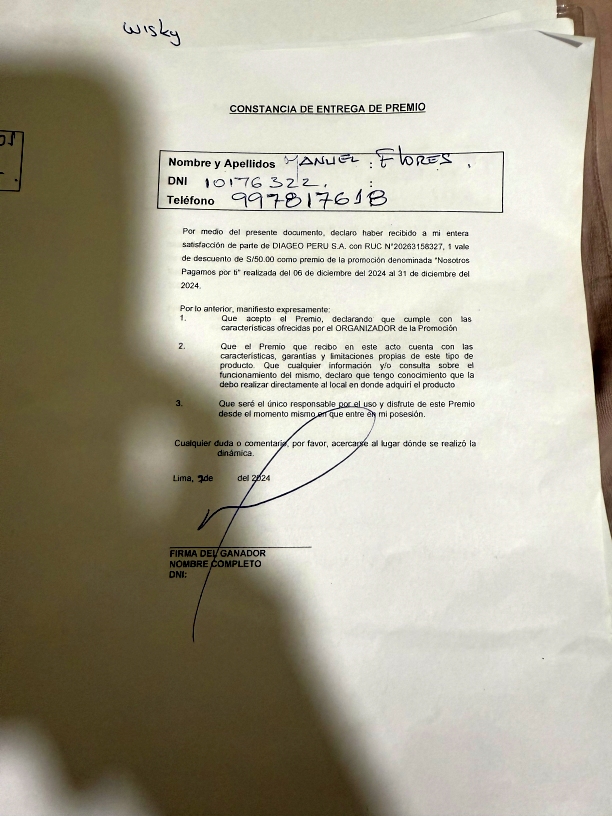 Wisky
CONSTANCIA DE ENTREGA DE PREMIO
Nombre y Apellidos MANUEL : FLORES .
DNI 10176322. :
Teléfono 997817618
Por medio del presente documento, declaro haber recibido a mi entera
satisfacción de parte de DIAGEO PERU S.A. con RUC N°20263158327, 1 vale
de descuento de S/50.00 como premio de la promoción denominada "Nosotros
Pagamos por ti" realizada del 06 de diciembre del 2024 al 31 de diciembre del
2024.
Por lo anterior, manifiesto expresamente:
1. Que acepto el Premio, declarando que cumple con las
características ofrecidas por el ORGANIZADOR de la Promoción
2. Que el Premio que recibo en este acto cuenta con las
características, garantías y limitaciones propias de este tipo de
producto. Que cualquier información y/o consulta sobre el
funcionamiento del mismo, declaro que tengo conocimiento que la
debo realizar directamente al local en donde adquirí el producto
3. Que seré el único responsable por el uso y disfrute de este Premio
desde el momento mismo en que entre en mi posesión.
Cualquier duda o comentario, por favor, acercarse al lugar dónde se realizó la
dinámica.
Lima, de del 2024
FIRMA DEL GANADOR
NOMBRE COMPLETO
DNI: